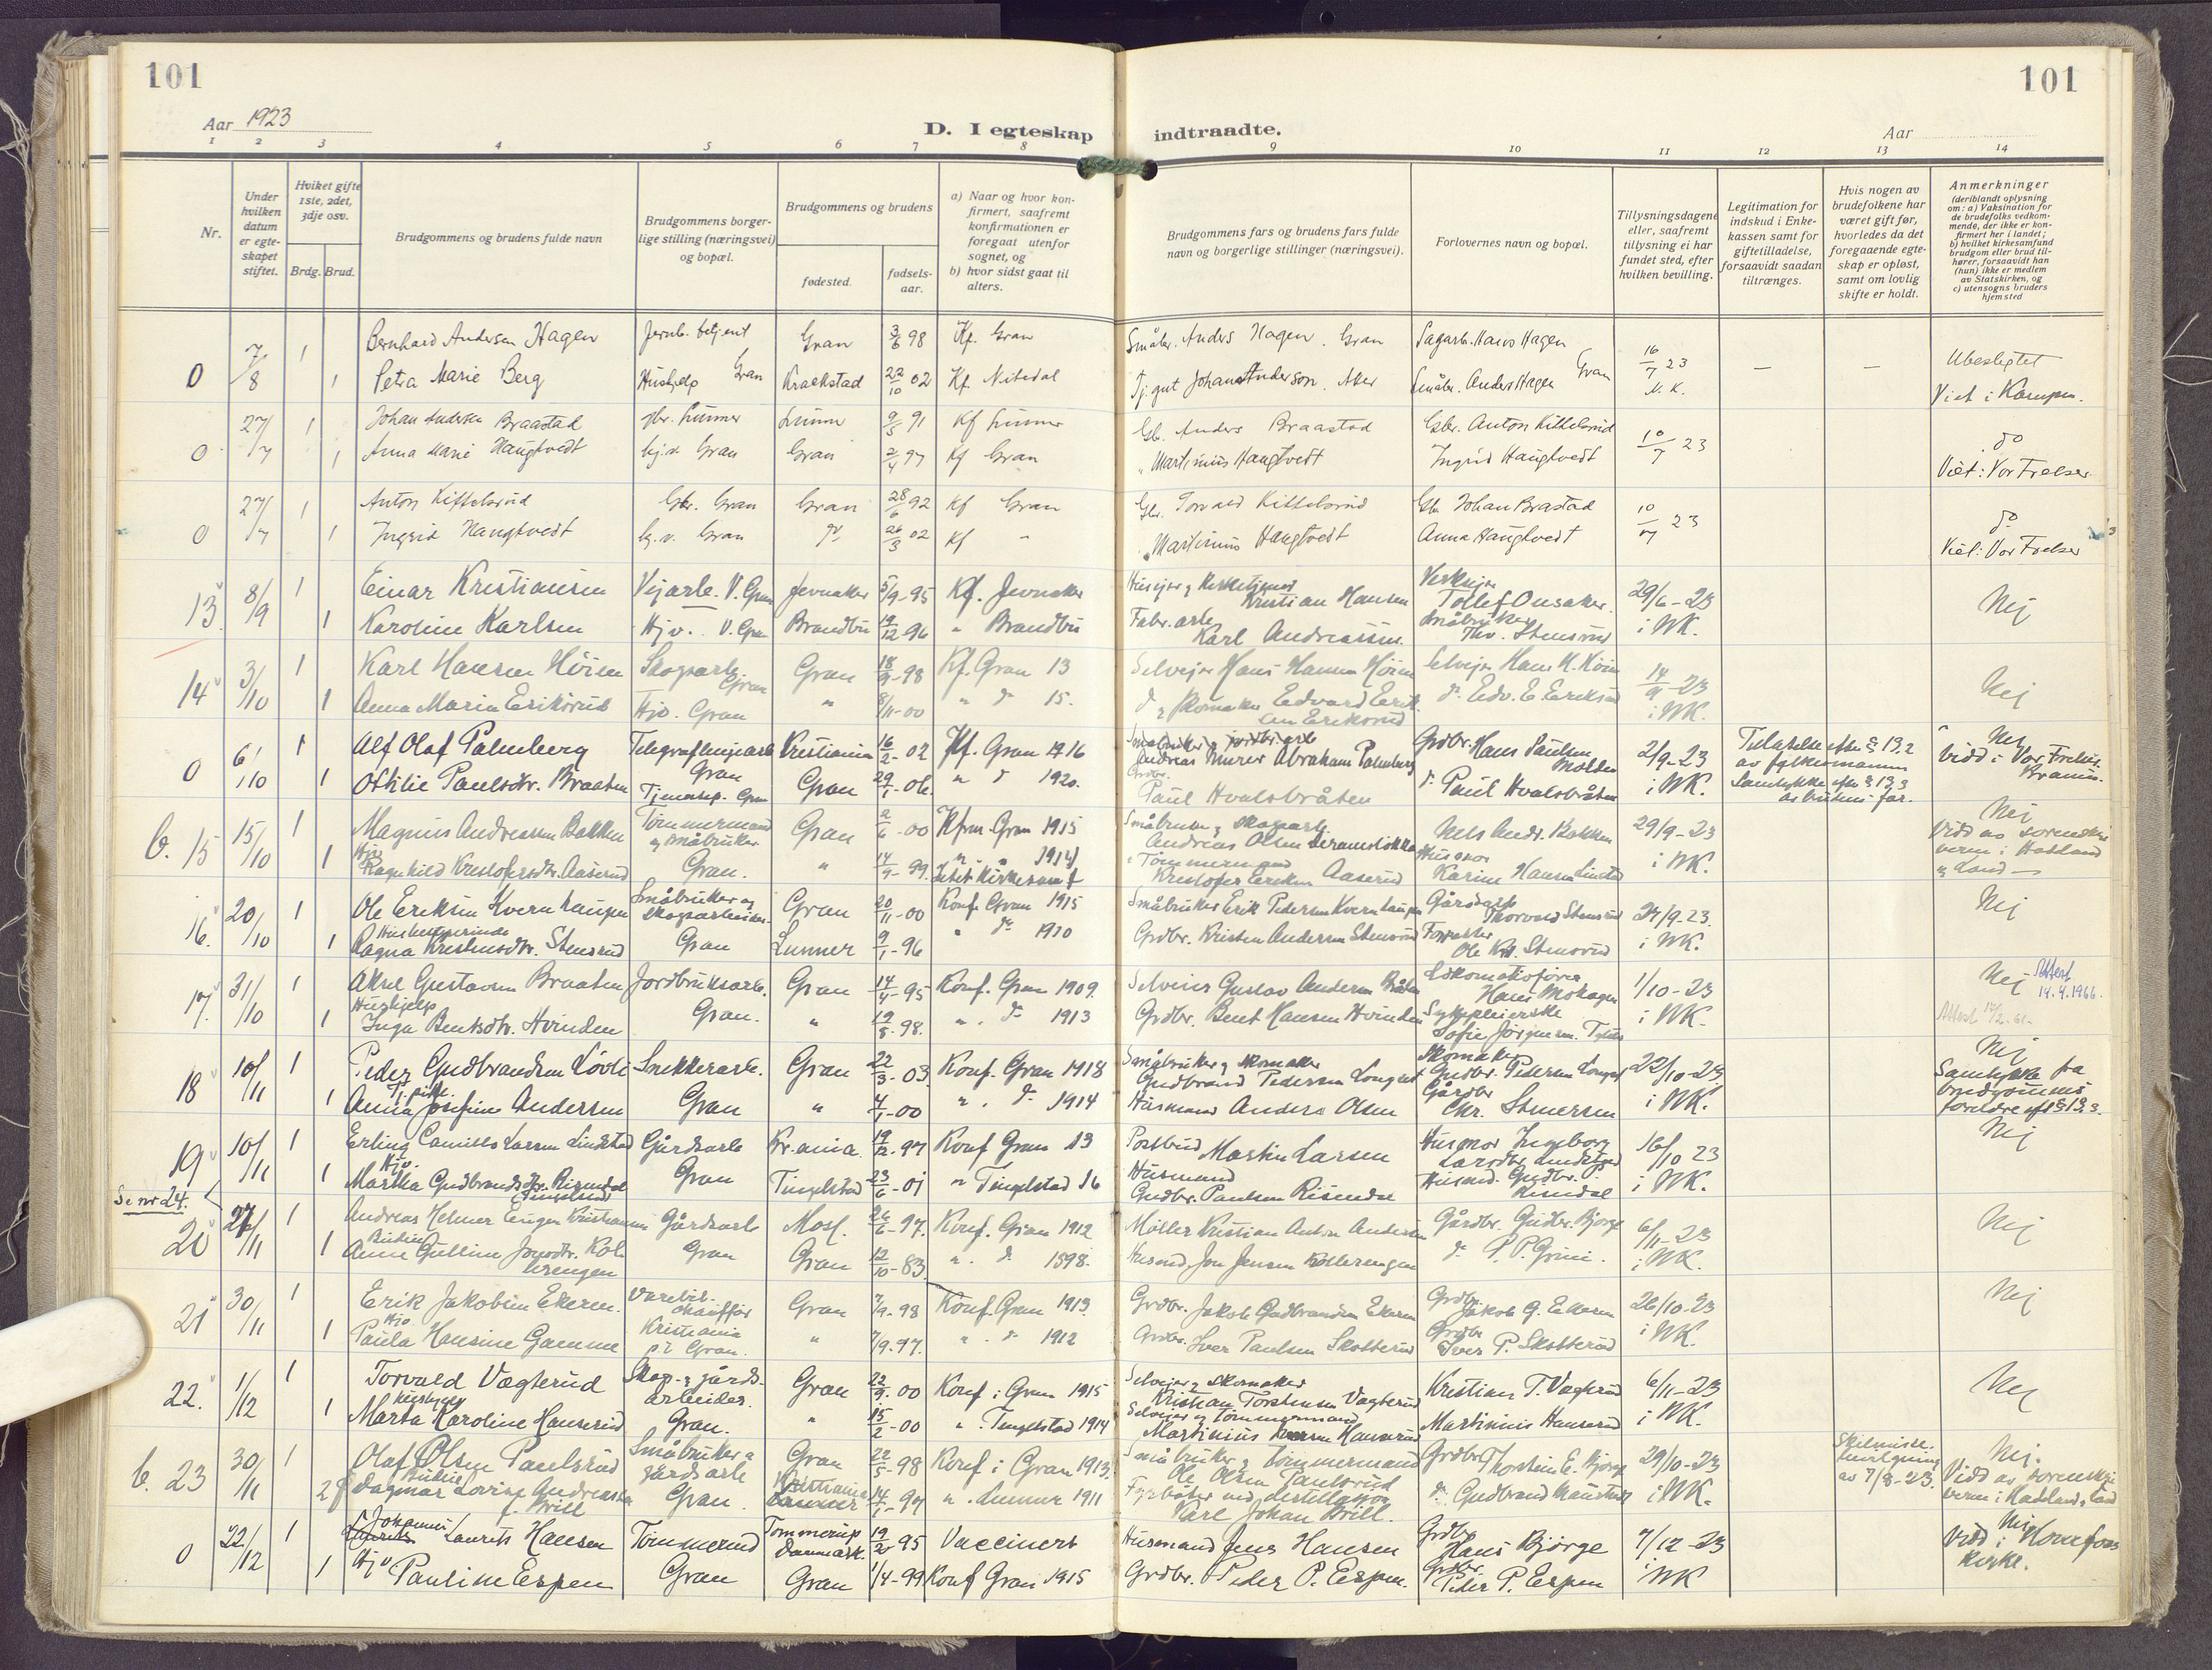 101
101
Aar 1923
D. I egteskap indtraadte.
Aar
1 2 3 4 5 6 7 8 9 10 11 12 13 14
Nr.
Under hvilken datum er egteskapet stiftet.
Hviket gifte 1ste, 2det, 3dje osv.
Brdg. Brud.
Brudgommens og brudens fulde navn
Brudgommens borgerlige stilling (næringsvei) og bopæl.
Brudgommens og brudens
fødested.
fødselsaar.
a) Naar og hvor konfirmert, saafremt konfirmationen er foregaat utenfor sognet, og
b) hvor sidst gaat til alters.
Brudgommens fars og brudens fars fulde navn og borgerlige stillinger (næringsvei).
Forlovernes navn og bopæl.
Tillysningsdagene eller, saafremt tillysning ei har fundet sted, efter hvilken bevilling.
Legitimation for indskud i Enkekassen samt for giftetilladelse, forsaavidt saadan tiltrænges.
Hvis nogen av brudefolkene har været gift før, hvorledes da det foregaaende egteskap er opløst, samt om lovlig skifte er holdt.
Anmerkninger
(deriblandt oplysning om: a) Vaksination for de brudefolks vedkommende, der ikke er konfirmert her i landet;
b) hvilket kirkesamfund brudgom eller brud tilhører, forsaavidt han (hun) ikke er medlem av Statskirken, og
c) utensogns bruders hjemsted
0 7/8 1 Bernhard Andersen Hagen Jernb. betjent Gran 3/6 98 Kf. Gran Småbr. Anders Hagen. Gran Sagarb. Hans Hagen 16/7 23 — — Ubeslegtet
1 Petra Marie Berg Hushjelp Gran Kraakstad 22/10 02 Kf. Nitedal Tj.gut Johan Anderson. Aker Småbr. Anders Hagen Gran M. K. Viet i Kampen.
0 27/7 1 Johan Andersen Braastad Gbr. Lunner Lunner 9/5 91 Kf Lunner Gb. Anders Braastad Gbr. Anton Kittelsrud 10/7 23 do
1 Anna Marie Haugtvedt hj.v. Gran Gran 2/4 97 Kf Gran " Martinius Haugtvedt Ingrid Haugtvedt Viet: Vor Frelser
0 27/7 1 Anton Kittelsrud Gbr. Gran Gran 28/6 92 Kf Gran Gbr. Torvald Kittelsrud Gb Johan Brastad 10/7 23 do
1 Ingrid Haugtvedt hj.v. Gran do 26/3 02 Kf " " Martinius Haugtvedt Anna Haugtvedt Viet: Vor Frelser
13 8/9 1 Einar Kristiansen Vejarb. V. Gran Jevnaker 5/9-95 Kf. Jevnaker Husejer & Kirketjener Kristian Hansen Tollef Onsaker. 29/6-23 Nej
1 Karoline Karlsen Hjv. V. Gran Brandbu 19/12-96 " Brandbu Fabr. arb. Karl Andreassen. Småbruker Thv. Stensrud i NK.
14 3/10 1 Karl Hansen Høien Skogsarb. Gran Gran 18/9-98 Kf. Gran 13 Selvejer Hans Hansen Høien Selvejer Hans H. Høien 14/9-23 Nej
1 Anna Marie Eriksrud Hjv. Gran " 8/11-00 " do 15. do & skomaker Edvard Eriksen Eriksrud do Edv. E. Eriksrud i NK.
0 6/10 1 Alf Olaf Palmberg Telegraflinjearb. Gran Kristiania 16/2-02 Kf. Gran 1716 Småbruker & jordbr. arb. Andreas Abraham Palmberg Grdbr. Hans Paulsen Molden 2/9-23 Tilatelse efter § 13,2 av fylkesmannen Nej
1 Othilie Paulsdtr. Braaten Tjenestep. Gran Gran 29/1-06. " do 1920. Grdbr. Paul Hvalsbråten do Paul Hvalsbråten i NK. Samtykke efter § 13,3 av brudens far. Vidd i Vor Frelser
b. 15 15/10 1 Magnus Andreassen Bakken Tømmermand og småbruker Gran 2/6-00 Kfrm. Gran 1915 Småbruker & skogsarb. Andreas Olsen Nels Andr. Bakken 29/9-23 Nej
1 Hjv. Ragnhild Kristofersdtr. Aaserud Gran. " 14/9-99. " " 1914 Tømmermand Kristofer Eriksen Aaserud Husmor Karine Hansen i NK. Vidd av sorenskriveren i Hadeland & Land —
16. 20/10 1 Ole Eriksen Kvernhaugen Småbruker og skogsarbeider. Gran 20/11-00 Konf. Gran 1915 Småbruker Erik Pedersen Kvernhaugen Gårdarb. Thorvald Stensrud 24/9-23. Nej
1 Ragna Kristensdtr. Stensrud Gran Lunner 9/1-96 " do 1910 Grdbr. Kristen Andersen Stensrud Ole Kr. Stensrud i NK.
17. 31/10 1 Aksel Gustavsen Braaten Jordbruksarb. Gran 14/4-95 Konf. Gran 1909. Selveier Gustav Andersen Bråten Lokomotivfører Hans Mohagen 1/10-23 Nej Attest 14.4.1966.
1 Hushjelp Inga Bentsdtr. Hvinden Gran. " 19/8-98. ". do 1913 Grdbr. Bent Hansen Hvinden Sykepleierske Sofie Jørgensen i NK.
18 10/11 1 Peder Gudbrandsen Løvli Snekkerarb. Gran 22/3-03. Konf. Gran 1918 Småbruker & skomaker Gudbrand Pedersen Skomaker Gudbr. Pedersen 22/10-23. Nej
1 Tj. pike Anna Josefine Andersen Gran " 4/1-00 ". do 1914 Husmand Anders Olsen Gårdbr. Chr. Stenersen i NK. Samtykke fra brudgommens foreldre eft § 13.3.
19 10/11 1 Erling Camillo Larsen Lindstad Gårdsarb. Kr.ania. 19/12-97 Konf Gran 13 Postbud Martin Larsen Husmor Ingeborg 16/10 23 Nej
1 Hjv. Martha Gudbrandsdtr. Risendal Gran Tingelstad 23/6-01 " Tingelstad 16 Husmand Gudbr. Paulsen Risendal Husmd. Gudbr. P. Risendal i NK.
Se nr 24.
20 27/11 1 Andreas Helmer Eugen Kristiansen Gårdsarb Moss. 26/6-97. Konf. Gran 1912 Møller Kristian Anton Andersen Gårdbr. Gudbr. Bjørge 6/11-23 Nej
1 Anne Gulline Jonsdtr. Kollerengen Gran Gran 12/10-83. ". do 1898. Husmd. Jon Jensen Kollerengen do P. P. Grini. i NK.
21 30/11 1 Erik Jakobsen Ekeren. Varebil-chauffør Kristiania Gran 7/9-98 Konf. Gran 1913 Grdbr. Jakob Gudbrandsen Ekeren Grdbr. Jakob G. Ekeren 26/10-23 Nej
1 Hjv. Paula Hansine Gamme Gran. " 7/9.97. ". do 1912 Grdbr. Iver Paulsen Skotterud Grdbr. Iver P. Skotterud i NK.
22. 1/12 1 Torvald Vagterud Skog- & gårdsarbeider. Gran 22/9-00 Konf. i Gran 1915 Selveier & skomaker Kristian Torstensen Vagterud Kristian T. Vagterud 6/11-23 Nej
1 Marta Karoline Hanserud Gran. " 15/2-00 ". Tingelstad 1914 Selveier & tømmermand Martinius Hanserud Martinius Hanserud i NK.
b. 23 30/11 1 Olaf Olsen Paulsrud Småbruker & gårdsarb Gran 22/5-98 Konf i Gran 1913. Småbruker & tømmermand Ole Olsen Paulsrud Grdbr. Thorstein E. Bjørge 29/10-23 Skilsmisse-bevilgning av 7/8-23. Nej.
2 Dagmar Lovise f. Brill Gran. Kristiania 14/7-97 ". Lunner 1911 Fyrbøter ved destillasjon Karl Johan Brill. do Gudbrand i NK. Vidd av sorenskriveren i Hadeland & Land
0 22/12 1 Johannes Laurits Hansen Tømmermd Tommerup Danmark. 19/20 95 Vaccinert Husmand Jens Hansen Grdbr. Hans Bjørge 7/12-23 Nej
1 Hjv Pauline Espen Gran Gran 1/4-99 Konf Gran 1915 Grdbr. Peder P. Espen. Grdbr. Peder P. Espen i NK Vidd i Hønefoss kirke.